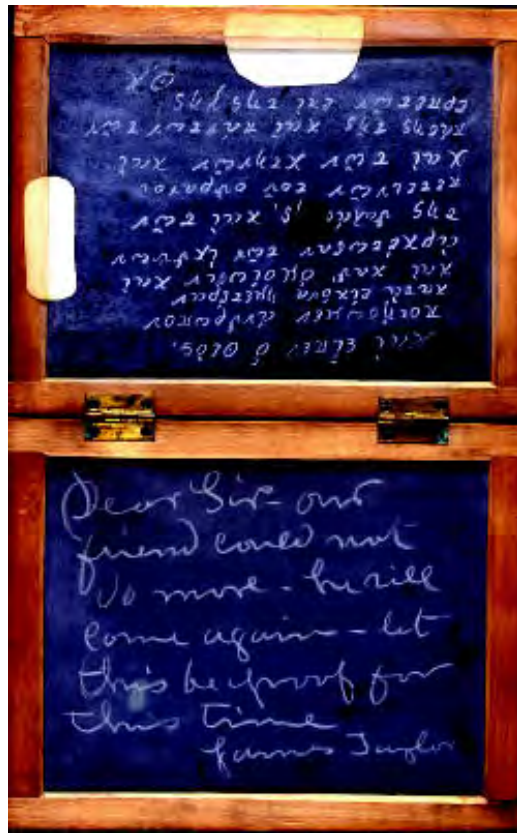 Καὶ εἶπεν ὁ Θεός,
ποιήσωμεν ἄνθρωπον
κατὰ εἰκόνα ἡμετέραν
καὶ καθ' ὁμοίωσιν καὶ
ἀρχέτωσαν τῶν ἰχθύων
τῆς καὶ τῶν
πετεινῶν τοῦ οὐρανοῦ
καὶ τῶν κτηνῶν καὶ
πάσης τῆς καὶ πάντων τῶν
ἑρπετῶν ἐπὶ τῆς γῆς
Dear Sir - our
friend could not
do more - he will
come again - let
this be proof for
this time
James Taylor